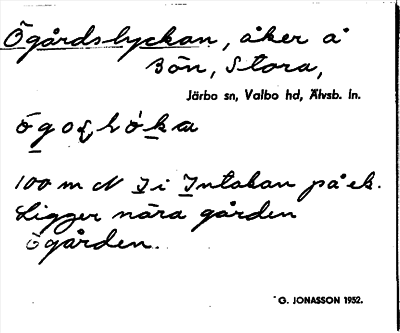 Ögårdslyckan, åker å
Bön, Stora,
Järbo sn, Valbo hd, Älvsb. ln.
100 m N I i Intakan på ek.
Ligger nära gården
Ögården.
G. JONASSON 1952.